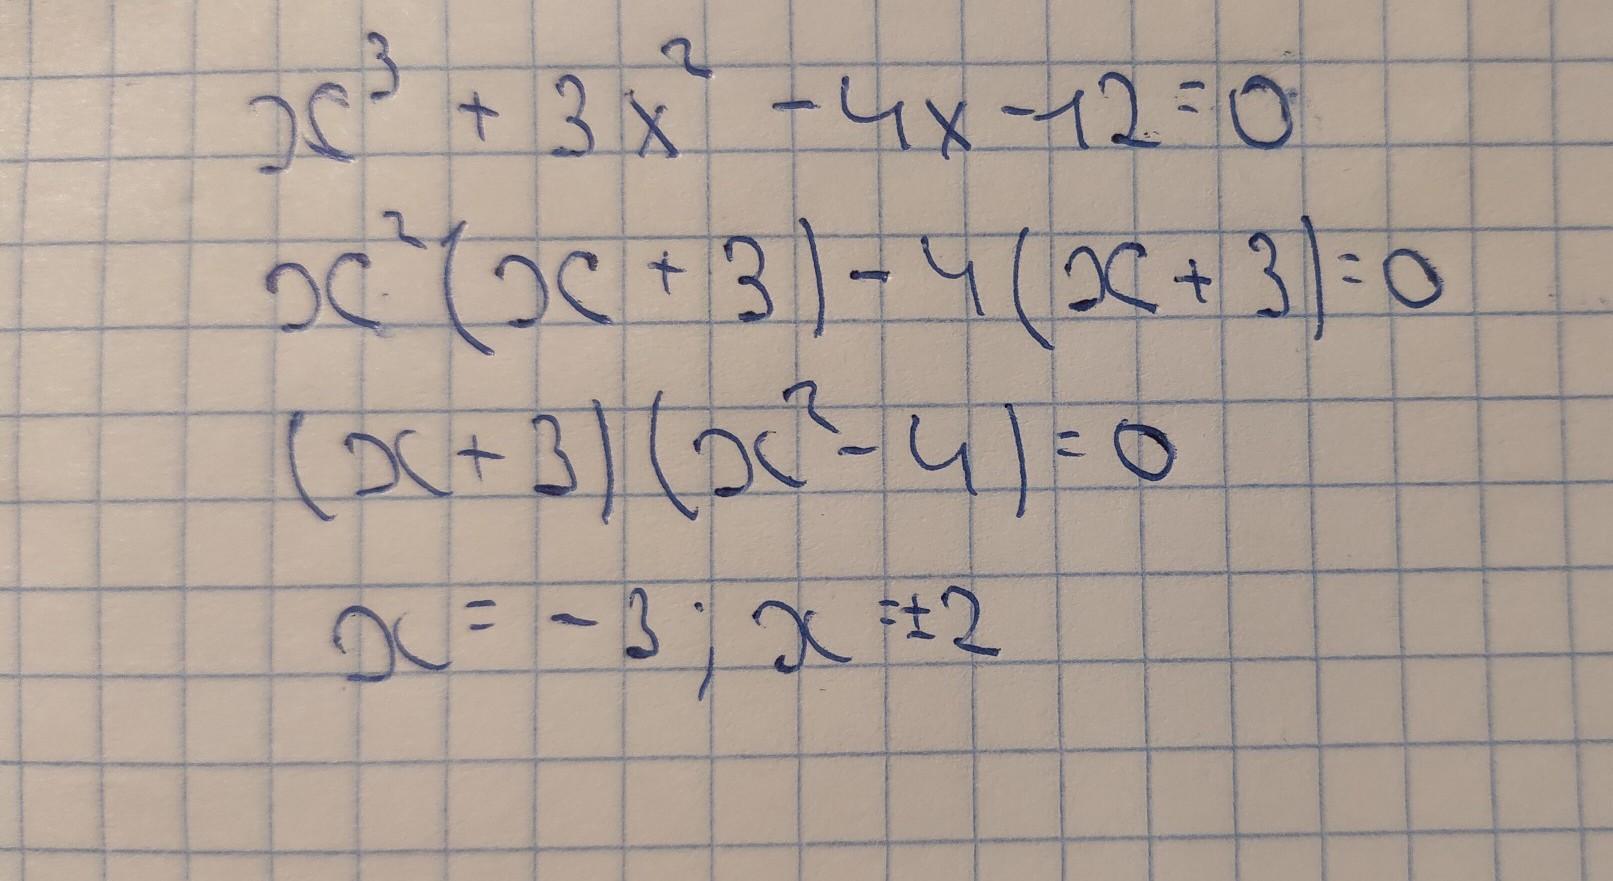 x³ + 3x² - 4x - 12 = 0
x²(x + 3) - 4(x + 3) = 0
(x + 3)(x² - 4) = 0
x = - 3; x = ±2